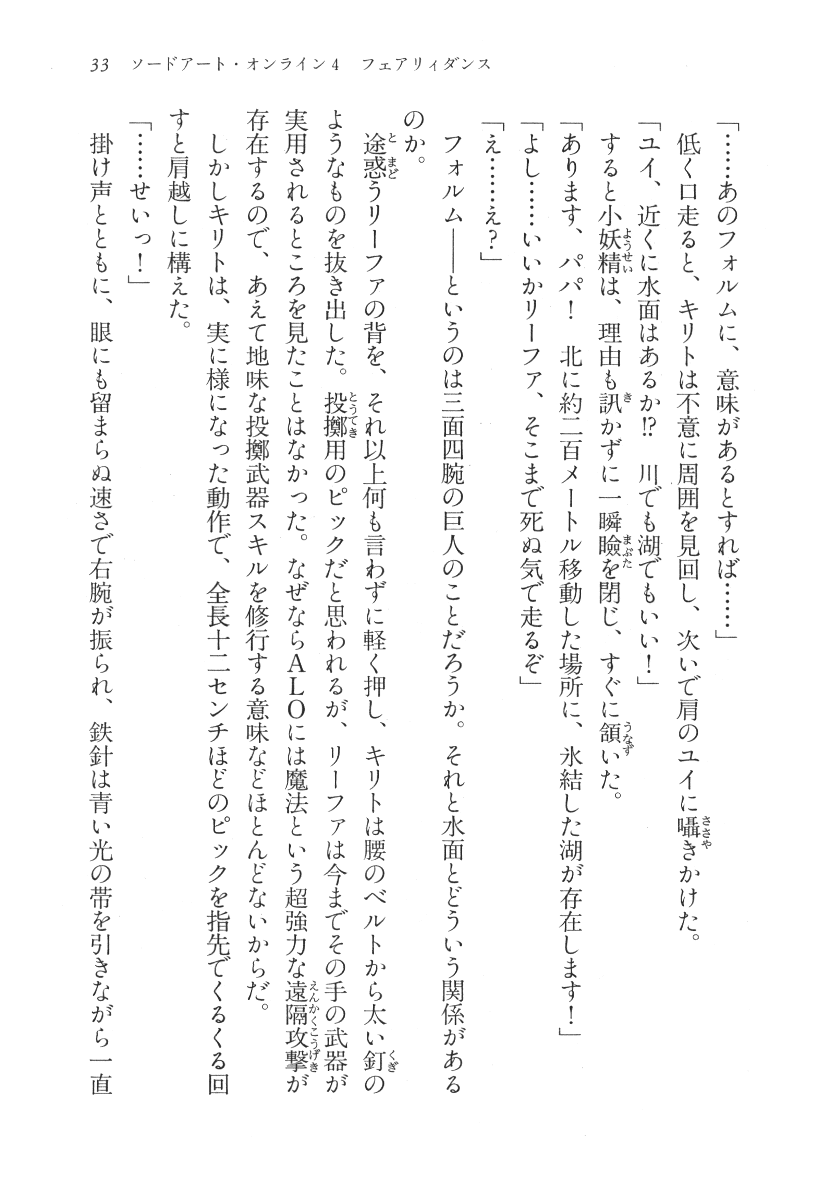 33 ソードアート・オンライン4 フェアリィダンス
「……あのフォルムに、意味があるとすれば……」
低く口走ると、キリトは不意に周囲を見回し、次いで肩のユイに囁きかけた。
「ユイ、近くに水面はあるか!? 川でも湖でもいい！」
すると小妖精は、理由も訊かずに一瞬瞼を閉じ、すぐに頷いた。
「あります、パパ！ 北に約二百メートル移動した場所に、氷結した湖が存在します！」
「よし……いいかリーファ、そこまで死ぬ気で走るぞ」
「え……え？」
フォルム――というのは三面四腕の巨人のことだろうか。それと水面とどういう関係がある
のか。
途惑うリーファの背を、それ以上何も言わずに軽く押し、キリトは腰のベルトから太い釘の
ようなものを抜き出した。投擲用のピックだと思われるが、リーファは今までその手の武器が
実用されるところを見たことはなかった。なぜならＡＬＯには魔法という超強力な遠隔攻撃が
存在するので、あえて地味な投擲武器スキルを修行する意味などほとんどないからだ。
しかしキリトは、実に様になった動作で、全長十二センチほどのピックを指先でくるくる回
すと肩越しに構えた。
「……せいっ！」
掛け声とともに、眼にも留まらぬ速さで右腕が振られ、鉄針は青い光の帯を引きながら一直